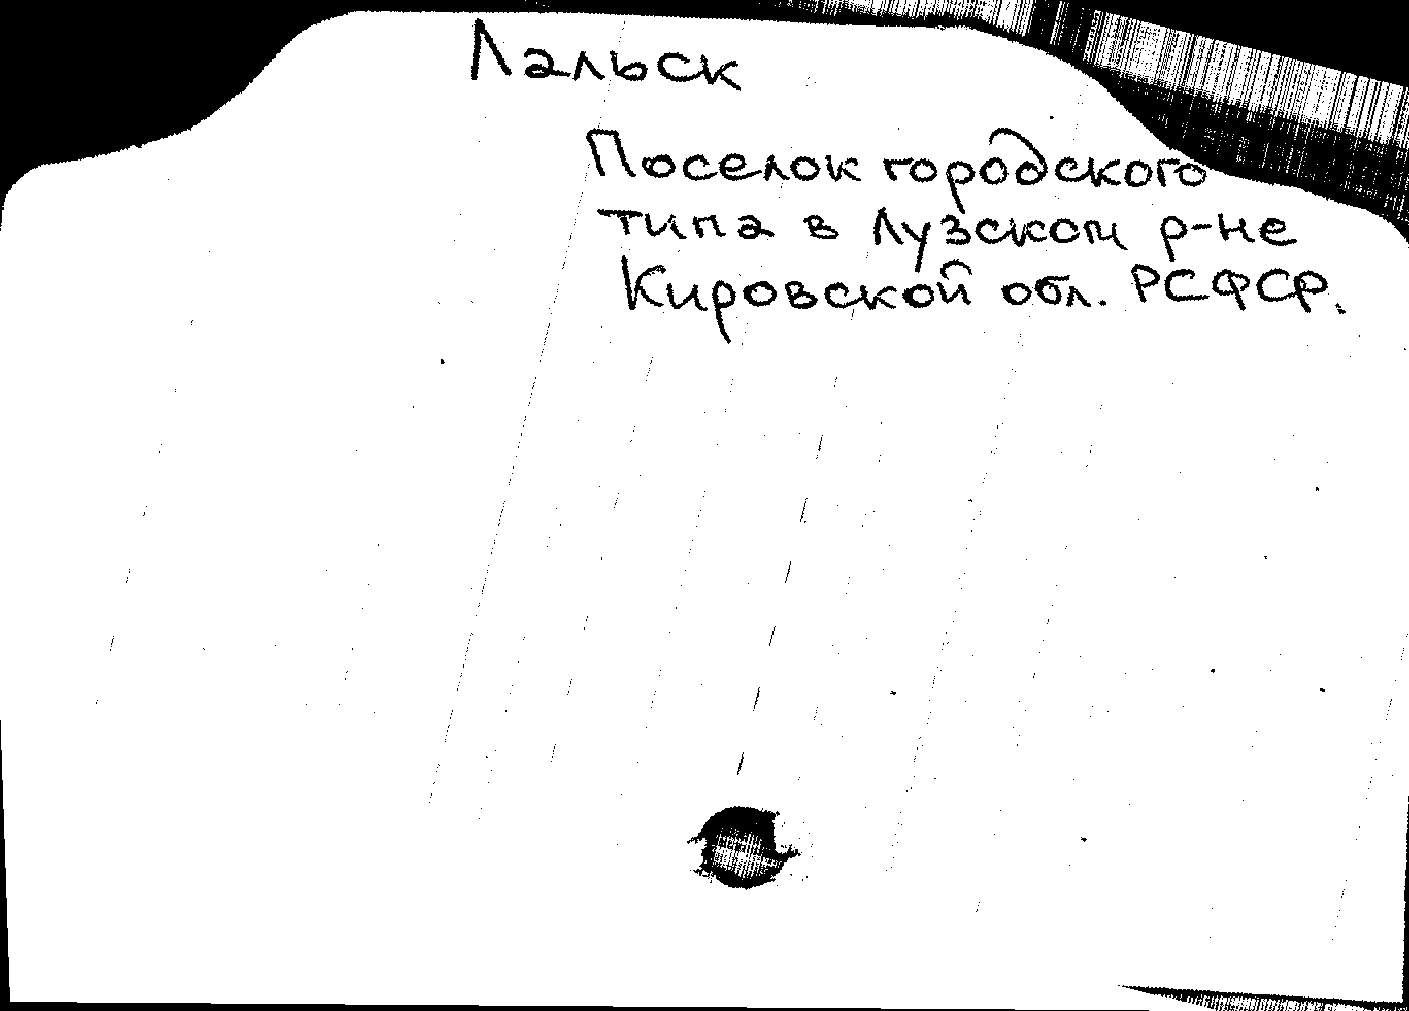 Лальск
Поселок городского
типа в Лузском р-не
Кировской обл. РСФСР.